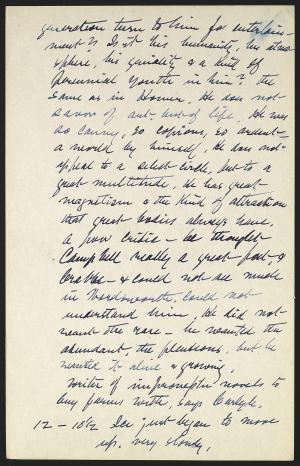 generation turn to him for entertain-
ment? Is it his humanity, his atmo
sphere, his geniality & a kind of
perennial youth in him? the
same as in Homer. He does not
savor of art, but of life. He was
so canny, so copious, so ardent -
a world by himself. He does not
appeal to a select circle, but to a
great multitude. He has great
magnetism & the kind of attraction
that great bodies always have.
A poor critic - he thought
Campbell really a great poet, &
Crabbe - & could not see much
in Wordsworth. Could not
understand him. He did not
want the rare - he wanted the
abundant, the plenteous, but he
wanted it alive & growing.
Writer of impromptu novels to
buy farms with, says Carlyle.
12 - 10½ Ice just began to move
up. very slowly.